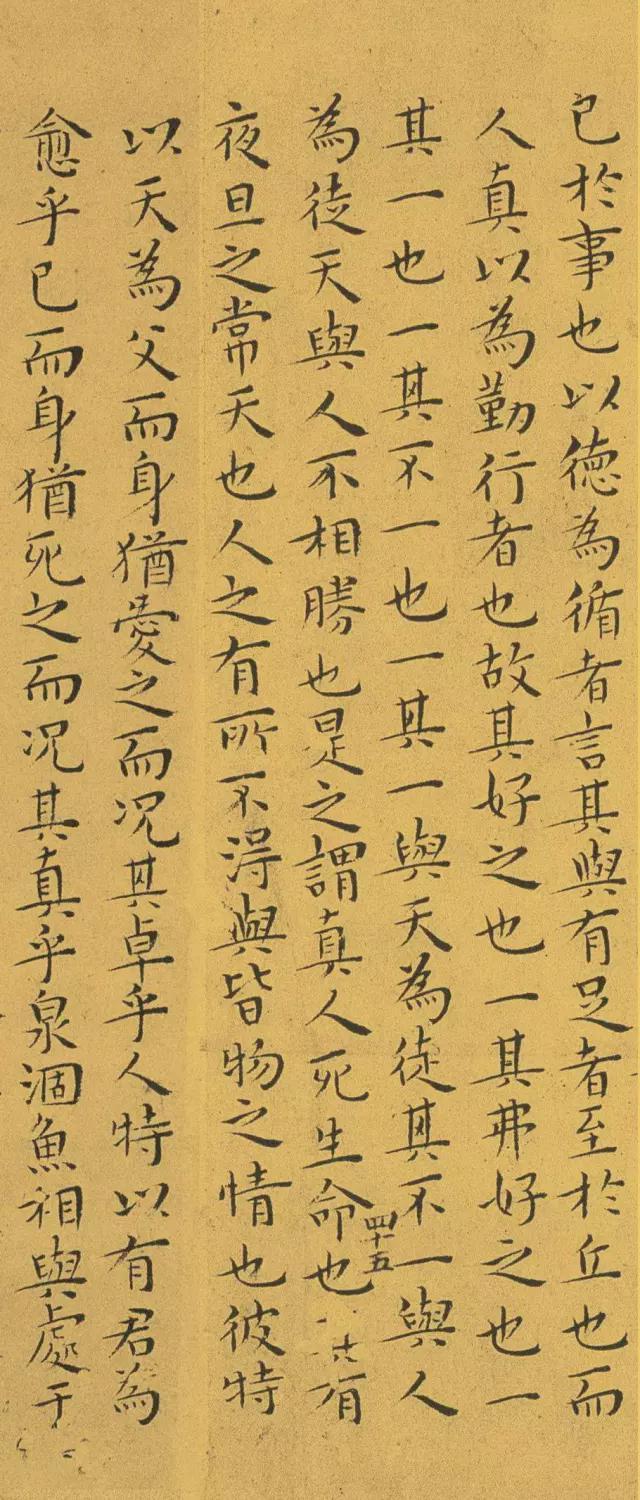 已於事也以德為循者言其與有足者至於丘也而
人真以為勤行者也故其好之也一其弗好之也一
其一也一其不一也一其一與天為徒其不一與人
四十五
為徒天與人不相勝也是之謂真人死生命也有
夜旦之常天也人之有所不得與皆物之情也彼特
以天為父而身猶愛之而况其卓乎人特以有君為
愈乎已而身猶死之而况其真乎泉涸魚相與處于